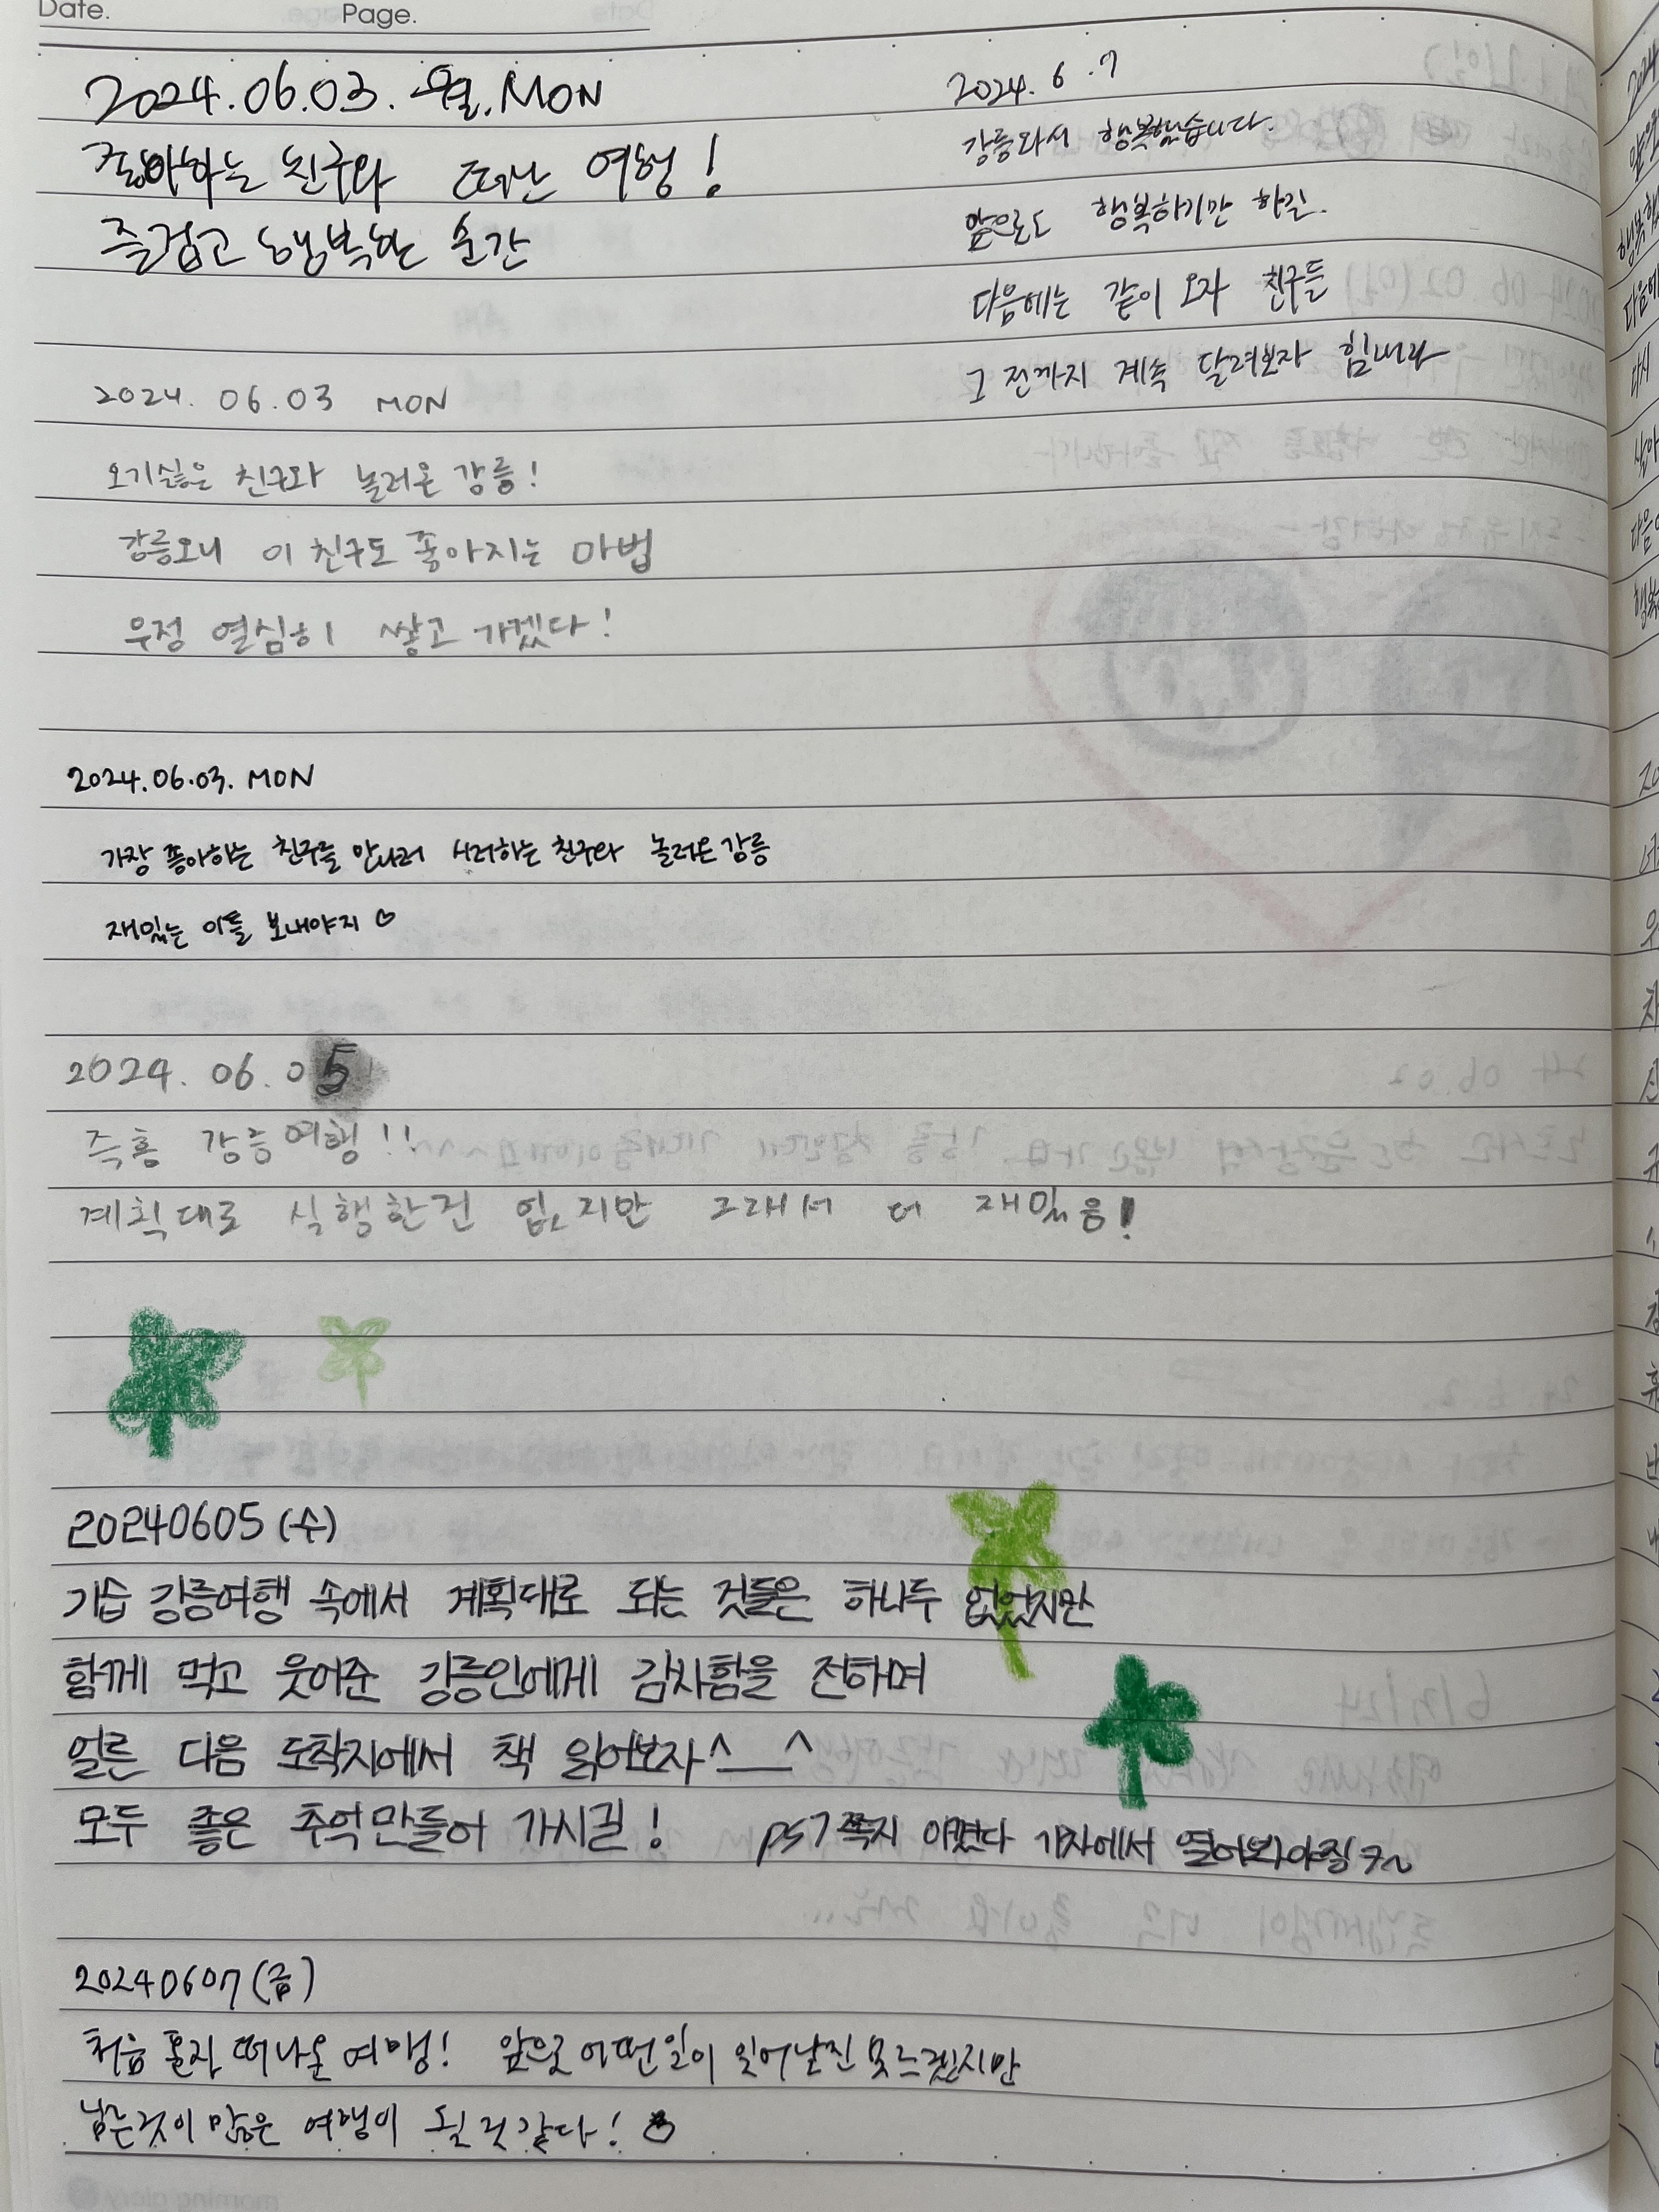 Date.
Page.
2024.06.03. 월. MON
좋아하는 친구와 떠난 여행!
즐겁고 행복한 순간
2024. 06.03 MON
오기싫은 친구와 놀러온 강릉!
강릉오니 이 친구도 좋아지는 마법
우정 열심히 쌓고 가겠다!
2024.06.03. MON
가장 좋아하는 친구를 만나러 시러하는 친구와 놀러온 강릉
재밌는 이틀 보내야지 ♡
2024. 06. 05
즉흥 강릉여행!!
계획대로 실행한건 없지만 그래서 더 재밌음!
20240605 (수)
기습 강릉여행 속에서 계획대로 되는 것들은 하나두 없었지만
함께 먹고 웃어준 강릉인에게 감사함을 전하며
얼른 다음 도착지에서 책 읽어보자^__^
모두 좋은 추억만들어 가시길!
쪽지 기차에서 열어봐야징ㅋ~
20240607 (금)
처음 혼자 떠나온 여행! 앞으로 어떤일이 일어날진 못느겠지만
남는것이 많은 여행이 될 것 같다!
2024. 6 .7
강릉와서 행복했습니다.
앞으로도 행복하기만 하길.
다음에는 같이 오자 친구들
그 전까지 계속 달려보자 힘내라